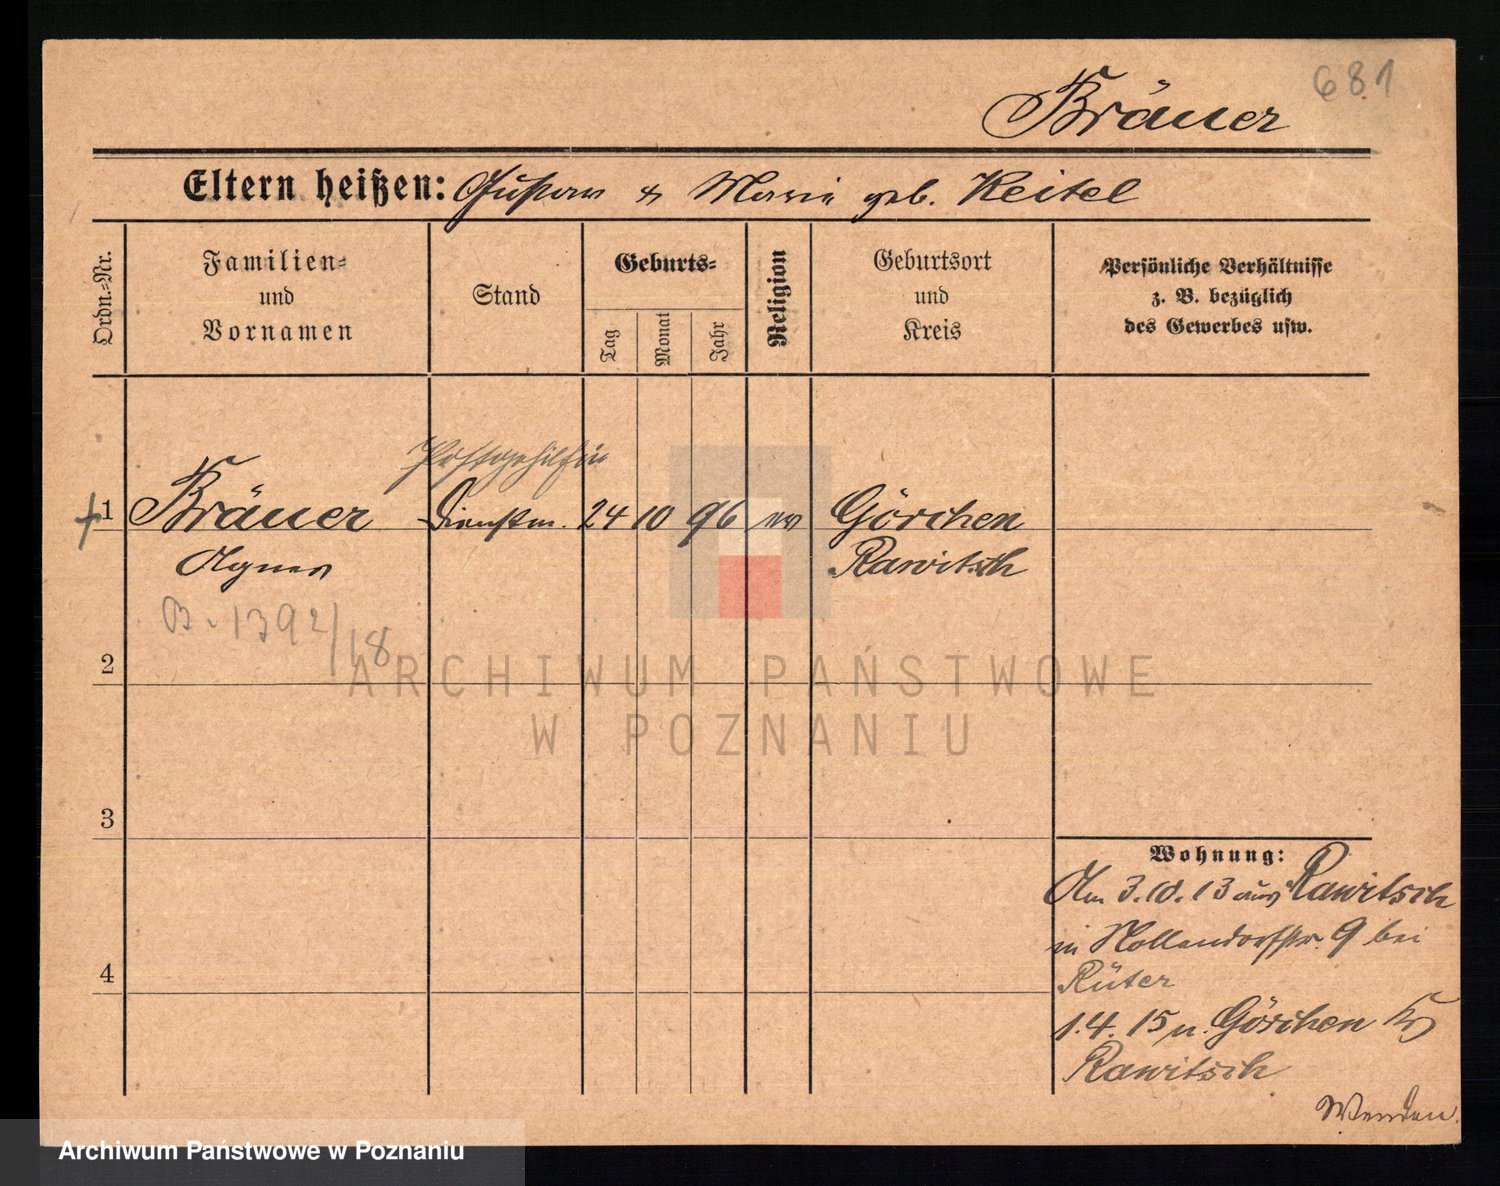 681
Bräuer
Eltern heißen: Gustav & Marie geb. Keitel
Ordn.-Nr.
Familien-
und
Vornamen
Stand
Geburts-
Tag
Monat
Jahr
Religion
Geburtsort
und
Kreis
Persönliche Verhältnisse
z. B. bezüglich
des Gewerbes usw.
Postgehilfin
1 Bräuer Dienstm. 24 10 96 ev Görchen
Agnes Rawitsch
B. 1392/18
2
ARCHIWUM PAŃSTWOWE
W POZNANIU
3
Wohnung:
Am 3.10.13 aus Rawitsch
in Nollendorfstr. 9 bei
4
Rüter
1.4.15 n. Görchen Kr
Rawitsch
Wenden.
Archiwum Państwowe w Poznaniu